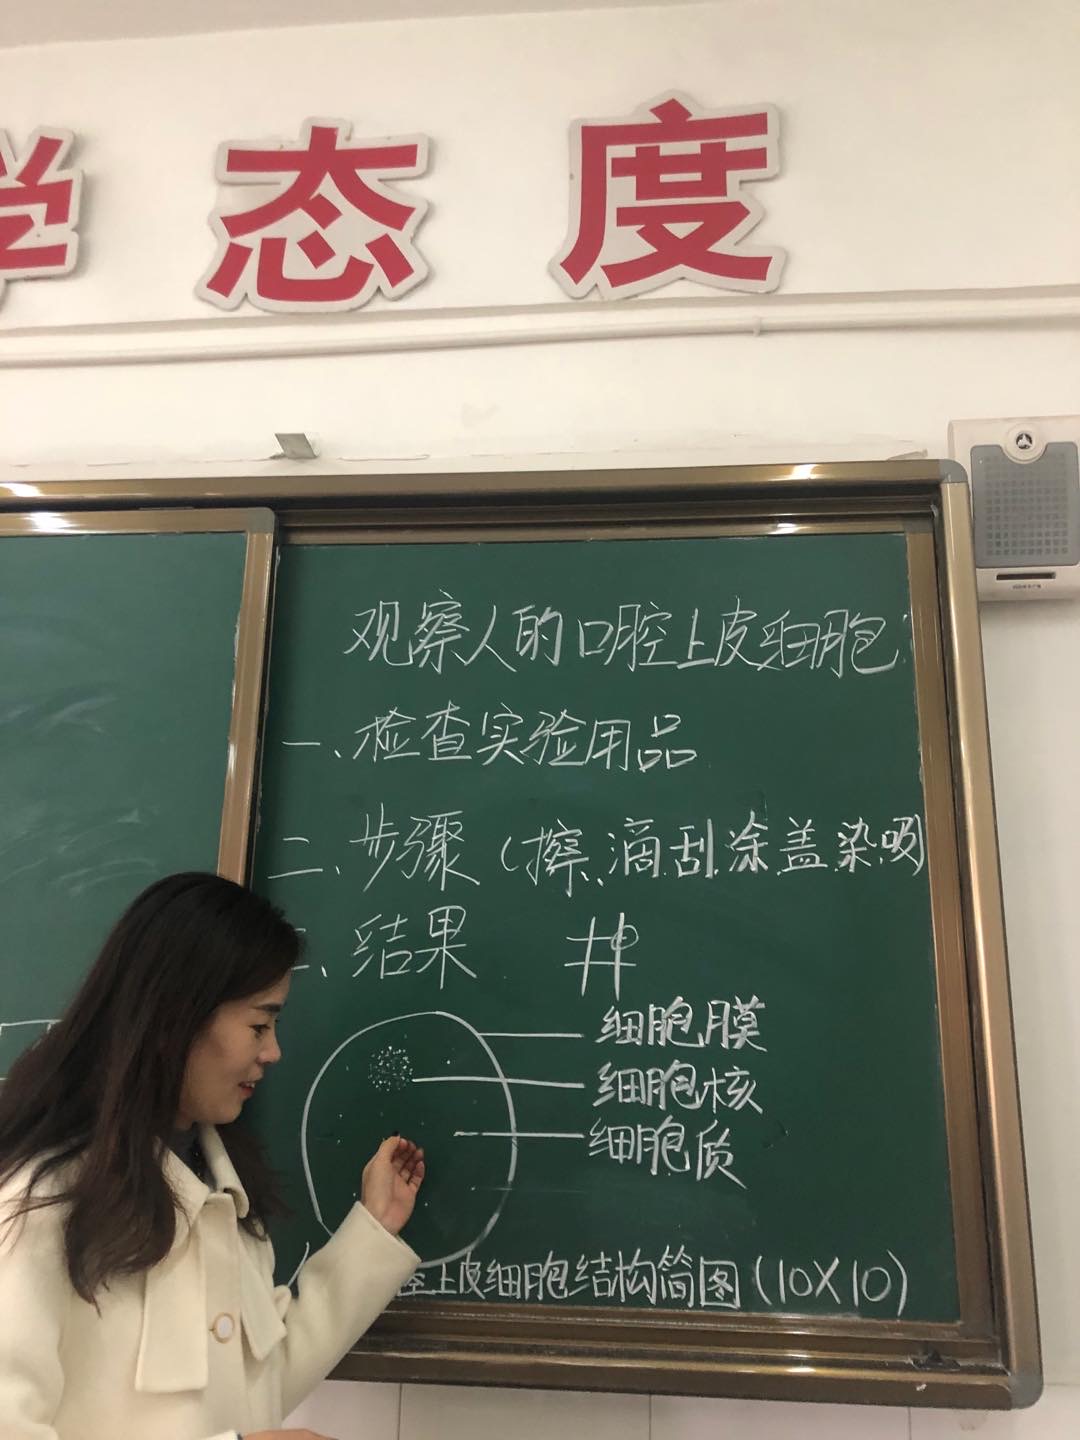 学态度
观察人的口腔上皮细胞
一、检查实验用品
二、步骤(擦、滴.刮.涂.盖.染.吸)
、结果
细胞膜
细胞核
细胞质
腔上皮细胞结构简图(10X10)